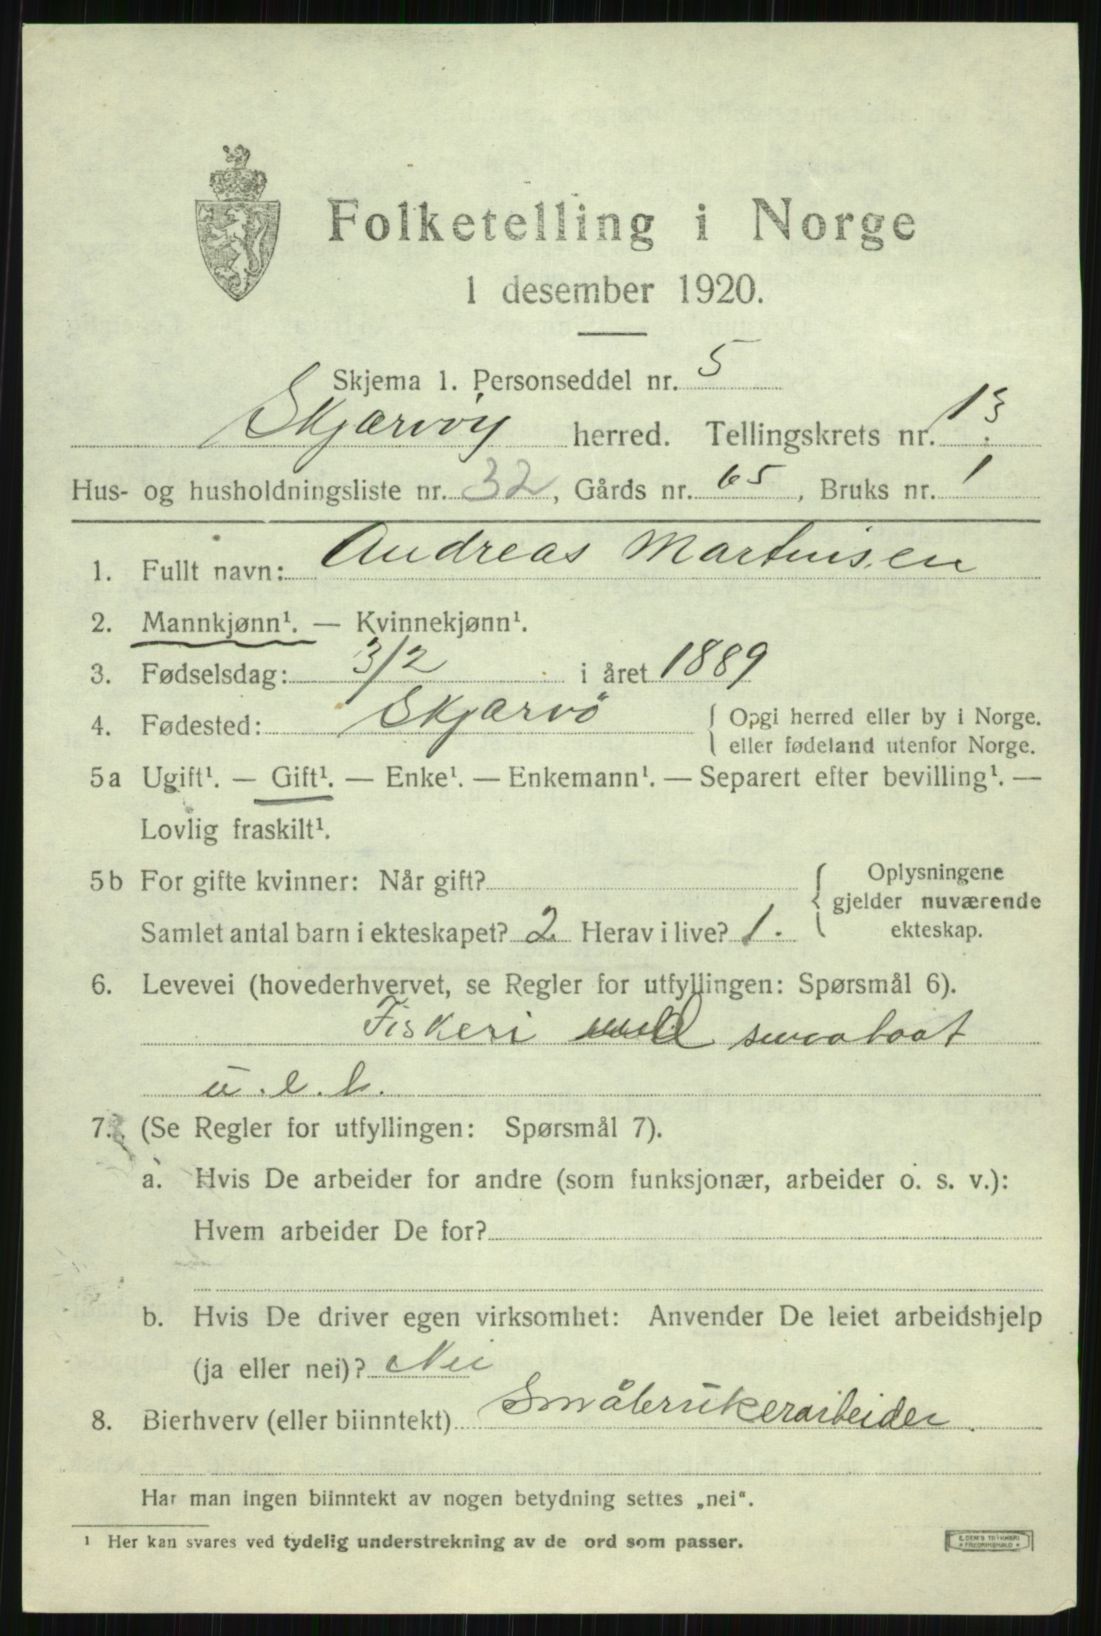 Folketelling i Norge
1 desember 1920.
Skjema 1. Personseddel nr. 5
Skjærvöy herred. Tellingskrets nr. 13.
Hus- og husholdningsliste nr. 32, Gårds nr. 65, Bruks nr. 1
1. Fullt navn: Andreas Martinsen
2. Mannkjønn¹. — Kvinnekjønn¹.
3. Fødselsdag: 3/2 i året 1889
4. Fødested: Skjærvö { Opgi herred eller by i Norge.
eller fødeland utenfor Norge.
5a Ugift¹. — Gift¹. — Enke¹. — Enkemann¹. — Separert efter bevilling¹. —
Lovlig fraskilt¹.
5b For gifte kvinner: Når gift? { Oplysningene
gjelder nuværende
Samlet antal barn i ekteskapet? 2 Herav i live? 1. ekteskap.
6. Levevei (hovederhvervet, se Regler for utfyllingen: Spørsmål 6).
Fiskeri med smaabaat
u. l. h.
7. (Se Regler for utfyllingen: Spørsmål 7).
a. Hvis De arbeider for andre (som funksjonær, arbeider o. s. v.):
Hvem arbeider De for?
b. Hvis De driver egen virksomhet: Anvender De leiet arbeidshjelp
(ja eller nei)? Nei
8. Bierhverv (eller biinntekt) Småbrukerarbeider.
Har man ingen biinntekt av nogen betydning settes „nei".
¹ Her kan svares ved tydelig understrekning av de ord som passer.
E. DEM'S TRYKKERI
FREDRIKSHALD